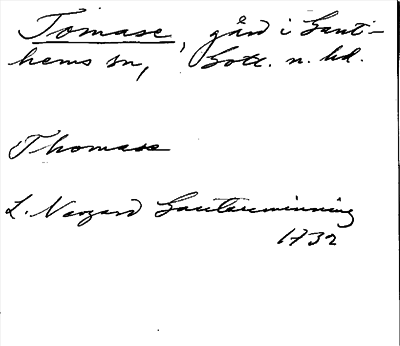 Tomase, gård i Gant-
hems sn, Gotl. n. hd.
Thomase
L. Neogard Gautauminning
1732